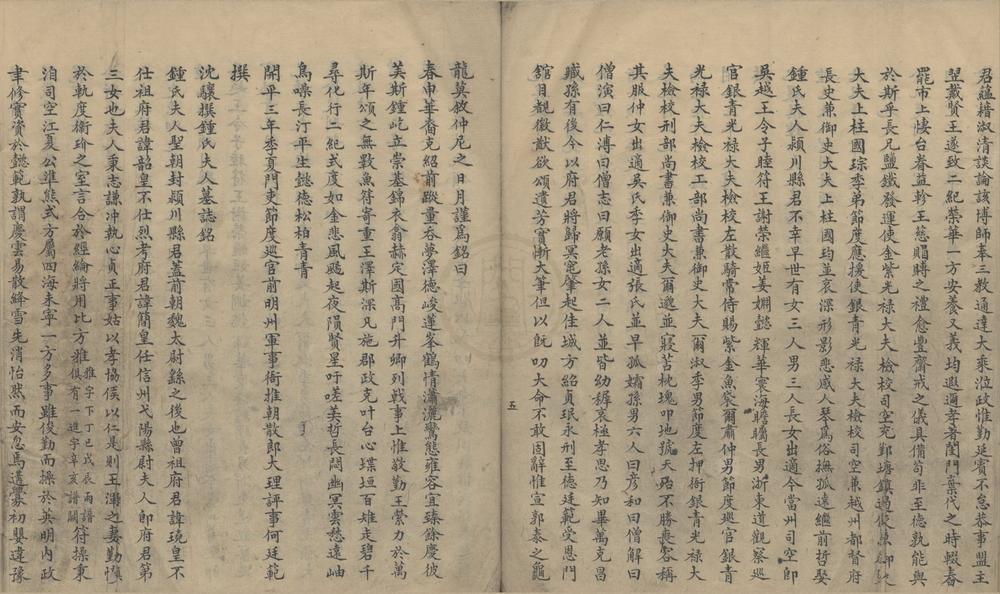 君蘊藉淑清談論該博師奉三教通達大乘涖政惟勤延賓不怠恭事盟主
翌戴賢王遂致二紀榮華一方安養又義均遐邇孝著閨門棄代之時輟春
罷市上悽台眷益軫王慈賵賻之禮愈豐齋戒之儀具備苟非至德孰能與
於斯乎長兄鹽鐵發運使金紫光祿大夫檢校司空充鄞塘鎮遏使
大夫上柱國琮季弟節度應援使銀青光祿大夫檢校司空兼越州都督府
長史兼御史大夫上柱國玓並哀深形影悲感人琴爲俗撫孤遠繼前哲娶
鍾氏夫人潁川縣君不幸早世有女三人男三人長女出適今當州司空即
吳越王令子睦符王謝榮繼姬姜嫻懿輝華寰海瞻矚長男浙東道觀察巡
官銀青光祿大夫檢校左散騎常侍賜紫金魚袋爾肅仲男節度巡官銀青
光祿大夫檢校工部尚書兼御史大夫爾淑季男節度左押衙銀青光祿大
夫檢校刑部尚書兼御史大夫爾邈並寢苫枕塊叩地號天殆不勝喪容稱
其服仲女出適吳氏季女出適張氏並早孤孀孫男六人曰彥和曰僧解曰
僧演曰仁溥曰僧志曰願老孫女二人並皆幼稺哀極孝思乃知畢萬克昌
臧孫有後今以府君將歸冥窀肇起佳城方紹貞珉永刑至德廷範受恩門
舘目覩徽猷欲頌遺芳實慚大筆但以旣叨大命不敢固辭惟宣郭泰之龜
龍莫敘仲尼之日月謹爲銘曰
春申華裔克紹前蹤量吞夢澤德峻蓮峯鶴情瀟灑鸞態雍容宜臻餘慶彼
美斯鍾屹立崇基錦衣翕赫定國高門升卿列戟事上惟敬勤王縈力於萬
斯年頌之無斁魚符寄重王澤斯深凡施郡政克叶台心堞垣百雉走碧千
尋化行二紀式度如金悲風颷起夜隕賢星吁嗟美哲長閟幽冥雲愁遠岫
鳥噪長汀平生懿德松柏青青
開平三年季夏門吏節度巡官前明州軍事衙推朝散郎大理評事何廷範
撰
沈驤撰鍾氏夫人墓誌銘
鍾氏夫人聖朝封潁川縣君蓋前朝魏太尉繇之後也曾祖府君諱璄皇不
仕祖府君諱韶皇不仕烈考府君諱簡皇任信州弋陽縣尉夫人即府君第
三女也夫人秉志謙沖執心貞正事姑以孝協侯以仁是則王渾之妻勤愼
於軌度衞玠之室言合於經綸將用比方雅俱有一進字辛亥譜闕雅字下丁巳戊衣兩譜符操秉
洎司空江夏公雄熊式方屬四海未寧一方多事雖俊勤而操於英明內政
聿修實資於懿範孰謂慶雲易散絳雪先消怡然而安忽焉遘𤸁初嬰違豫
五